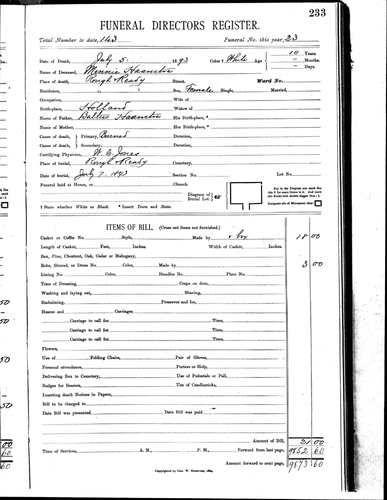 233
FUNERAL DIRECTORS REGISTER.
Total Number to date, 143 Funeral No. this year, 23
Date of Death, July 5. 1893 Color † White Age 10 Years.
Months.
Name of Deceased, Minnie
Days.
Place of death, Rough & Ready Street, Ward No.
Residence, Sex, Female Single, Married,
Occupation, Wife of
Birth-place, Holland Widow of
Name of Father, His Birth-place, *
Name of Mother, Her Birth-place, *
Cause of Death; Primary, Burned Duration,
Cause of Death; Secondary, Duration,
Certifying Physician, W. C. Jones
Place of burial, Rough & Ready Cemetery,
Date of burial, July 7. 1893 Section No. Lot No.
Funeral held at House, or Church
Diagram of Burial Lot.
† State whether White or Black. * Insert Town and State.
ITEMS OF BILL. (Cross out items not furnished.)
Casket or Coffin No. Style, Made by & box 18 00
Length of Casket, Feet, Inches. Width of Casket, Inches.
Box, Pine, Chestnut, Oak, Cedar or Mahogany,
Robe, Shroud, or Dress No. Color, Made by 3 00
Lining No. Color, Handles No. Plate No.
Time of Dressing, Crape on door,
Washing and laying out, Shaving,
Embalming, Preserver and Ice,
Hearse and Carriages
Carriage to call for Time,
Carriage to call for Time,
Carriage to call for Time,
Carriage to call for Time,
Flowers,
Use of Folding Chairs, Pair of Gloves,
Personal attendance, Porters or Help,
Delivering Box to Cemetery, Use of Pedestals or Pall,
Badges for Bearers, Use of Candlesticks,
Inserting death Notices in Papers,
Bill to be charged to
Date Bill was presented Date Bill was paid
Amount of Bill, 21 00
Time of Services, A. M., P. M., Forward from last page, 9852 60
Amount forward to next page, 9873 60